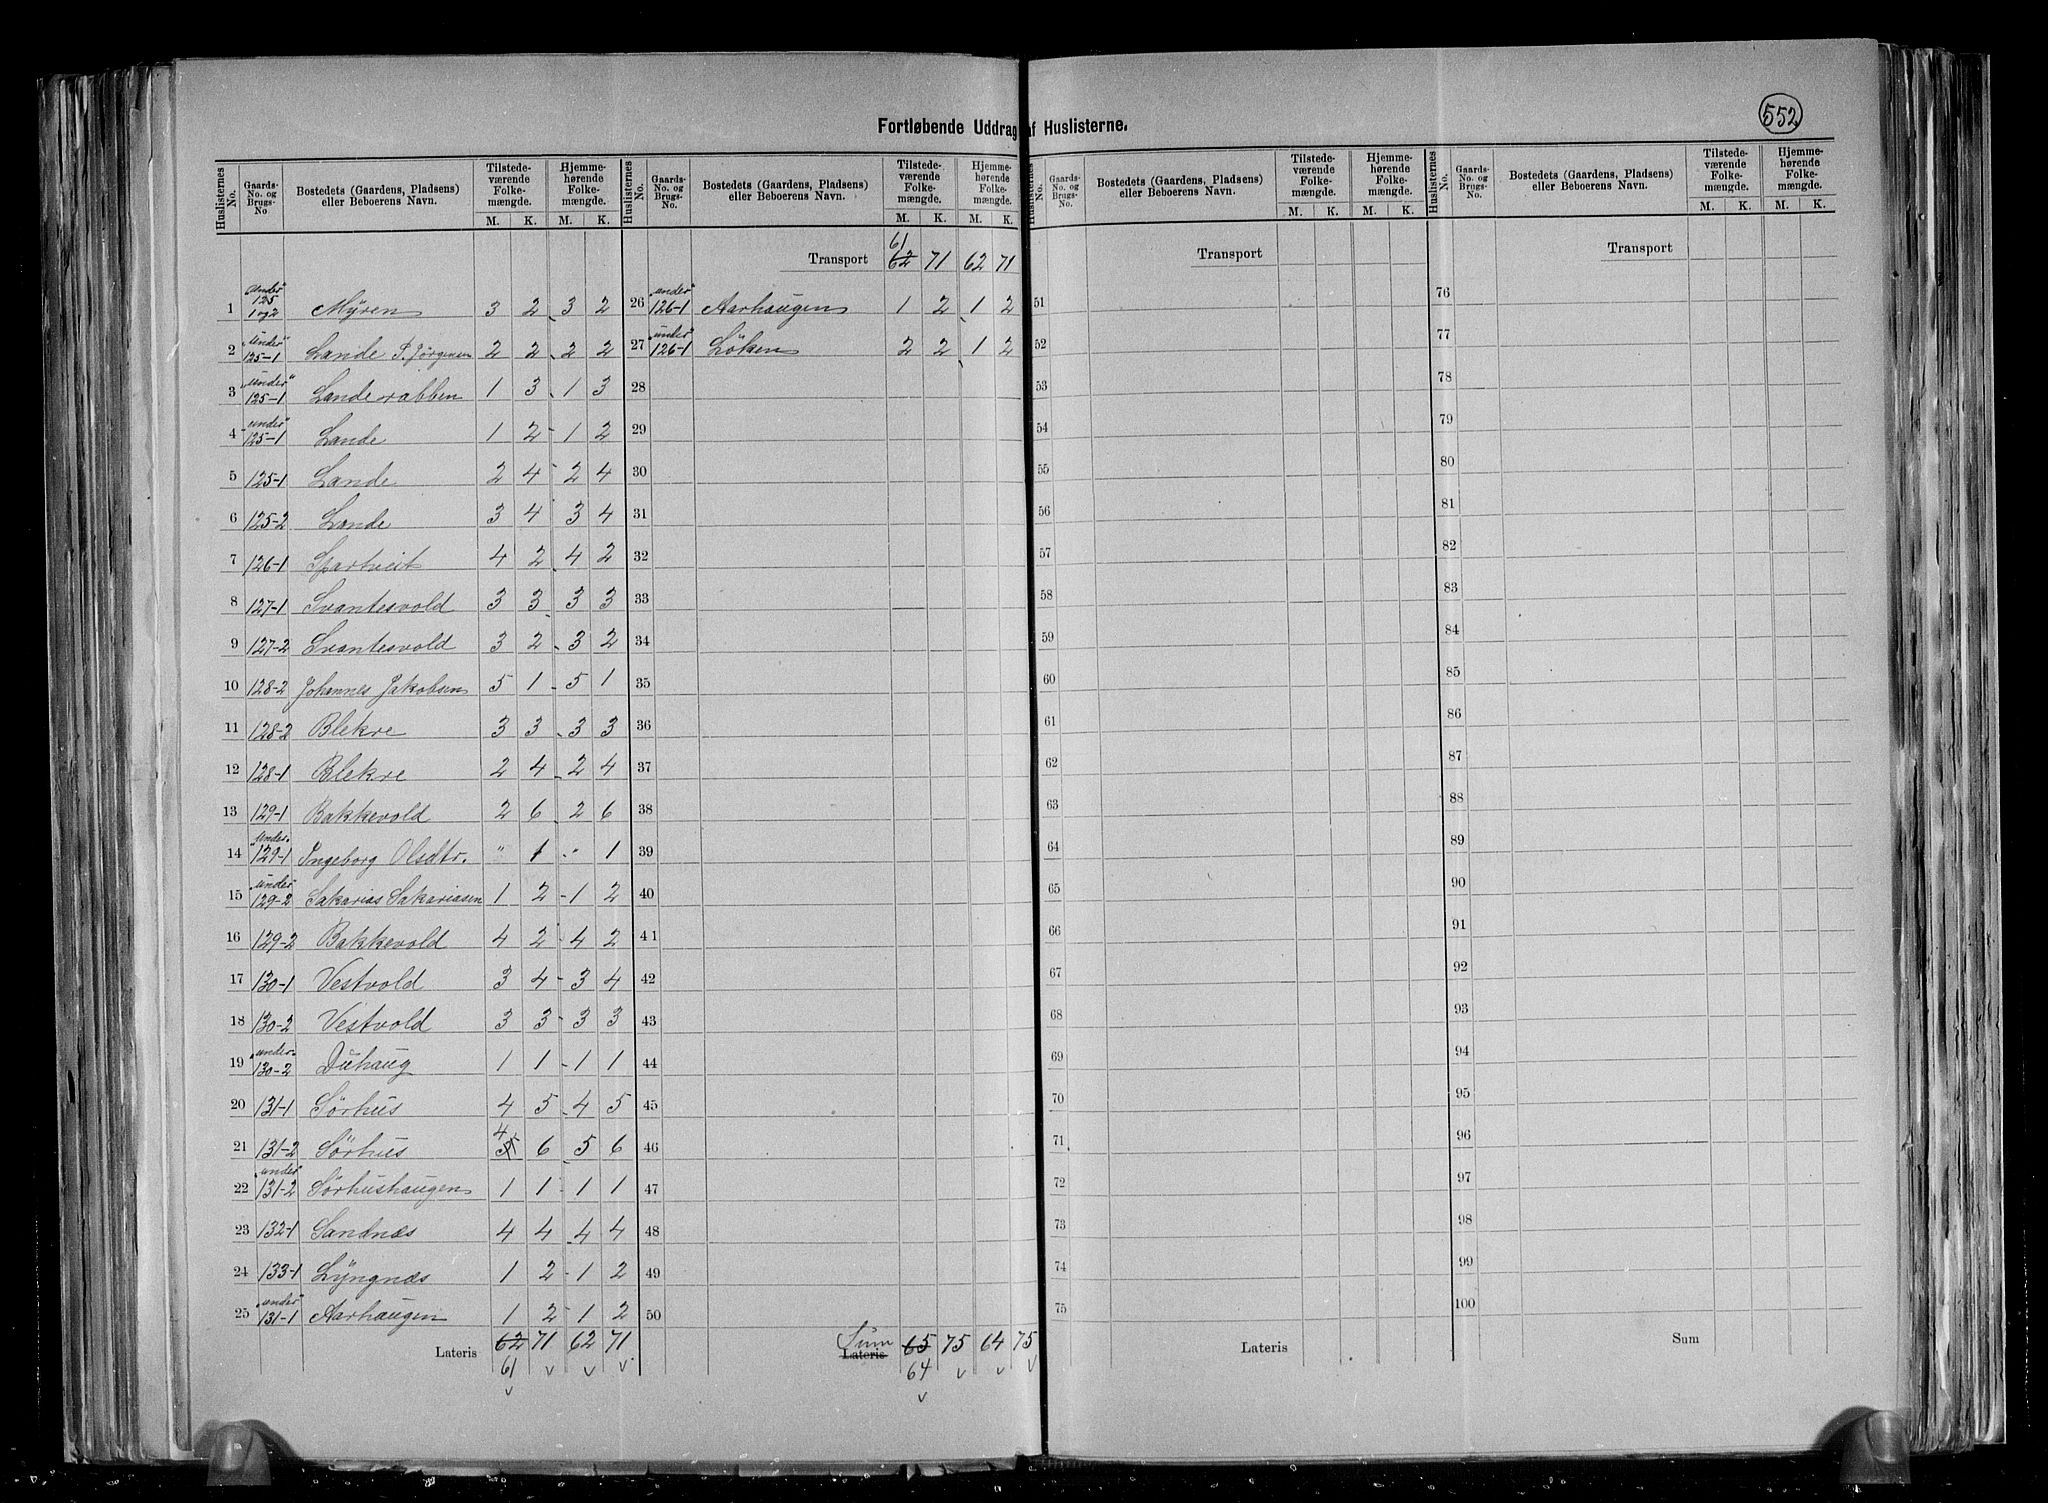 552
Fortløbende Uddrag af Huslisterne.
Huslisternes No. | Gaards-No. og Brugs-No | Bostedets (Gaardens, Pladsens) eller Beboerens Navn. | Tilstedeværende Folkemængde. M. K. | Hjemmehørende Folkemængde. M. K.
Huslisternes No. | Gaards-No. og Brugs-No. | Bostedets (Gaardens, Pladsens) eller Beboerens Navn. | Tilstedeværende Folkemængde. M. K. | Hjemmehørende Folkemængde. M. K.
Huslisternes No. | Gaards-No. og Brugs-No. | Bostedets (Gaardens, Pladsens) eller Beboerens Navn. | Tilstedeværende Folkemængde. M. K. | Hjemmehørende Folkemængde. M. K.
Huslisternes No. | Gaards-No. og Brugs-No. | Bostedets (Gaardens, Pladsens) eller Beboerens Navn. | Tilstedeværende Folkemængde. M. K. | Hjemmehørende Folkemængde. M. K.
1 "under" 125 1 og 2 Myren 3 2 3 2
2 "under" 125-1 Lande P. Jörgensen 2 2 2 2
3 "under" 125-1 Landerabben 1 3 1 3
4 "under" 125-1 Lande 1 2 1 2
5 125-1 Lande 2 4 2 4
6 125-2 Lande 3 4 3 4
7 126-1 Spartveit 4 2 4 2
8 127-1 Svantesvold 3 3 3 3
9 127-2 Svantesvold 3 2 3 2
10 128-2 Johannes Jakobsen 5 1 5 1
11 128-2 Blekre 3 3 3 3
12 128-1 Blekre 2 4 2 4
13 129-1 Bakkevold 2 6 2 6
14 "under" 129-1 Ingeborg Olsdtr. " 1 " 1
15 "under" 129-2 Sakarias Sakariasen 1 2 1 2
16 129-2 Bakkevold 4 2 4 2
17 130-1 Vestvold 3 4 3 4
18 130-2 Vestvold 3 3 3 3
19 "under" 130-2 Duhaug 1 1 1 1
20 131-1 Sörhus 4 5 4 5
21 131-2 Sörhus 4 5 6 5 6
22 "under" 131-2 Sörhushaugen 1 1 1 1
23 132-1 Sandnæs 4 4 4 4
24 133-1 Lyngnæs 1 2 1 2
25 "under" 131-1 Aarhaugen 1 2 1 2
Lateris 62 71 62 71
61
Transport 61 62 71 62 71
26 "under" 126-1 Aarhaugen 1 2 1 2
27 "under" 126-1 Löken 2 2 1 2
28
29
30
31
32
33
34
35
36
37
38
39
40
41
42
43
44
45
46
47
48
49
50
Sum Lateris 65 75 64 75
64
Transport
51
52
53
54
55
56
57
58
59
60
61
62
63
64
65
66
67
68
69
70
71
72
73
74
75
Lateris
Transport
76
77
78
79
80
81
82
83
84
85
86
87
88
89
90
91
92
93
94
95
96
97
98
99
100
Sum